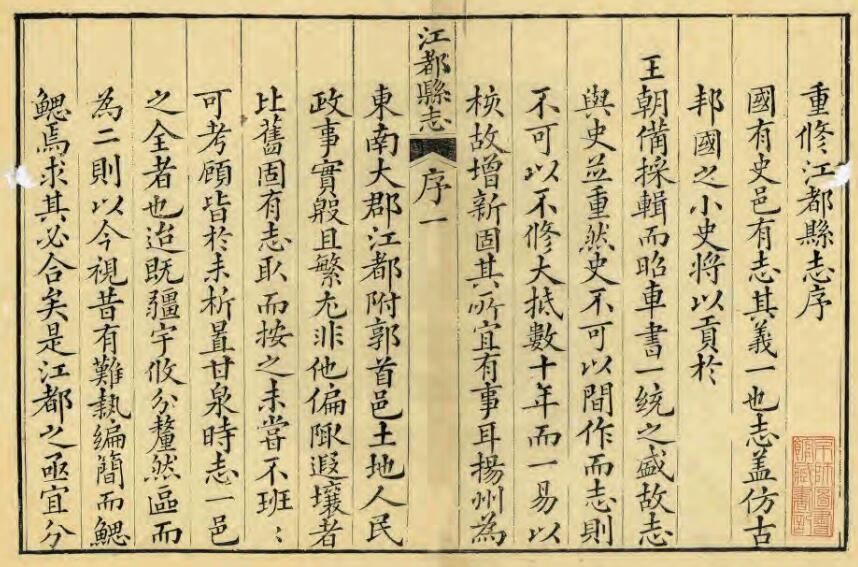 重修江都縣志序
國有史邑有志其義一也志盖仿古
邦國之小史將以貢於
王朝備採輯而昭車書一統之盛故志
與史並重然史不可以間作而志則
不可以不修大抵數十年而一易以
核故增新固其所宜有事耳揚州為
江都縣志 序一
東南大郡江都附郭首邑土地人民
政事實殷且繁尤非他偏陬遐壤者
比舊固有志取而按之未嘗不班:
可考顧皆於未析置甘泉時志一邑
之全者也迨既疆宇攸分釐然區而
為二則以今視昔有難執編簡而鰓
鰓焉求其必合矣是江都之亟宜分